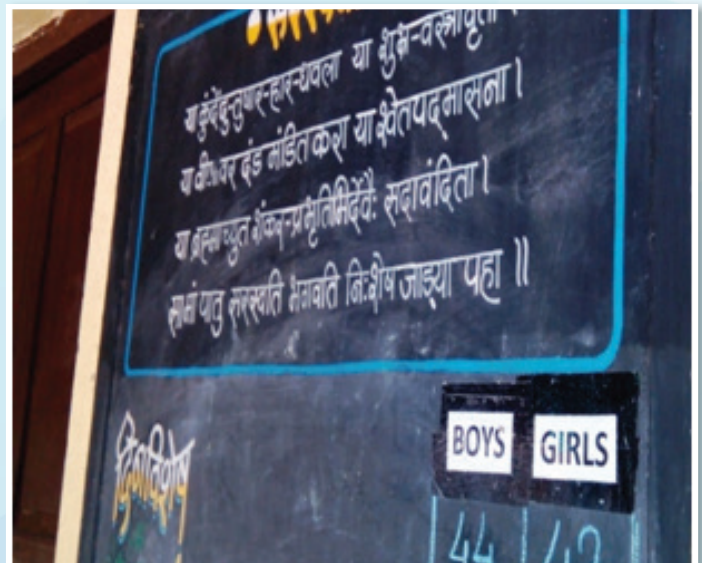 या कुंदेंदु-तुषार-हार-धवला या शुभ्र-वस्त्रावृता ।
या वीणावर दंड मंडितकरा या श्वेतपद्मासना ।
या ब्रह्माच्युत शंकर-प्रभृतिभिर्देवैः सदावंदिता ।
सामां पातु सरस्वति भगवति निःशेष जाड्या पहा ॥
दिनविशेष
BOYS GIRLS
44